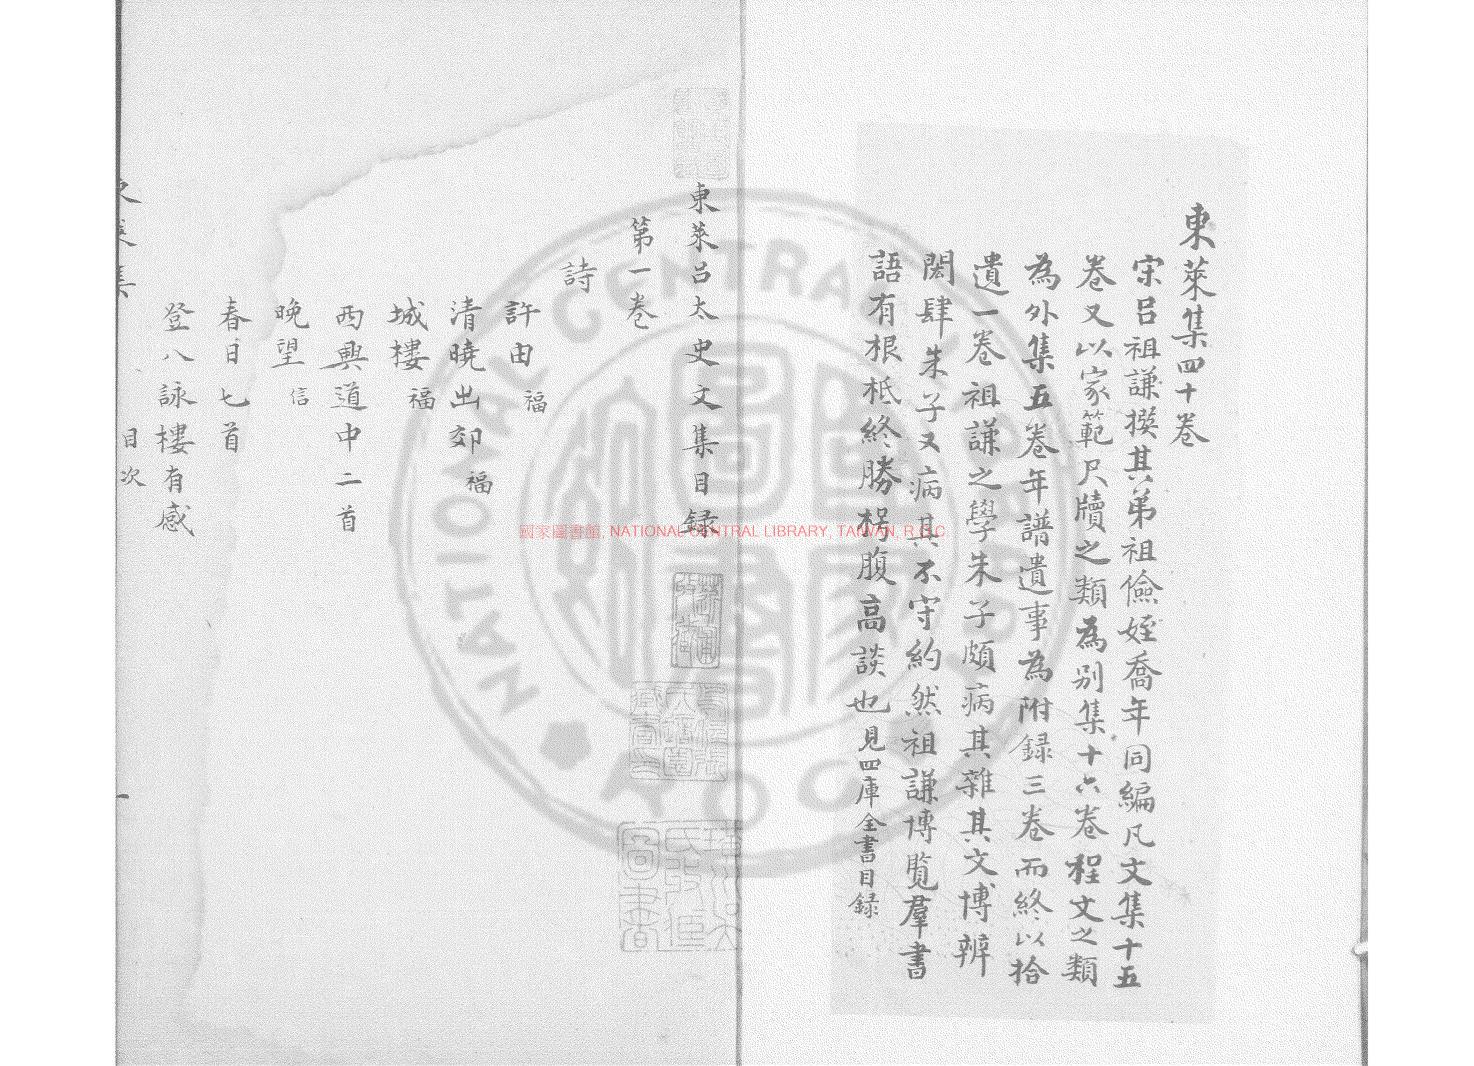 東萊集四十卷
宋呂祖謙撰其弟祖儉姪喬年同編凡文集十五
卷又以家範尺牘之類為別集十六卷程文之類
為外集五卷年譜遺事為附録三卷而終以拾
遺一卷祖謙之學朱子頗病其雜其文博辨
閎肆朱子又病其不守約然祖謙博覧羣書
語有根柢終勝枵腹高談也見四庫全書目録
東萊呂太史文集目録
第一卷
詩
許由 福
清曉出郊 福
城樓 福
西興道中二首
晚望 信
春日七首
登八詠樓有感
東萊集 目次 一
國家圖書館, NATIONAL CENTRAL LIBRARY, TAIWAN, R.O.C.
NATIONAL CENTRAL LIBRARY
ROC